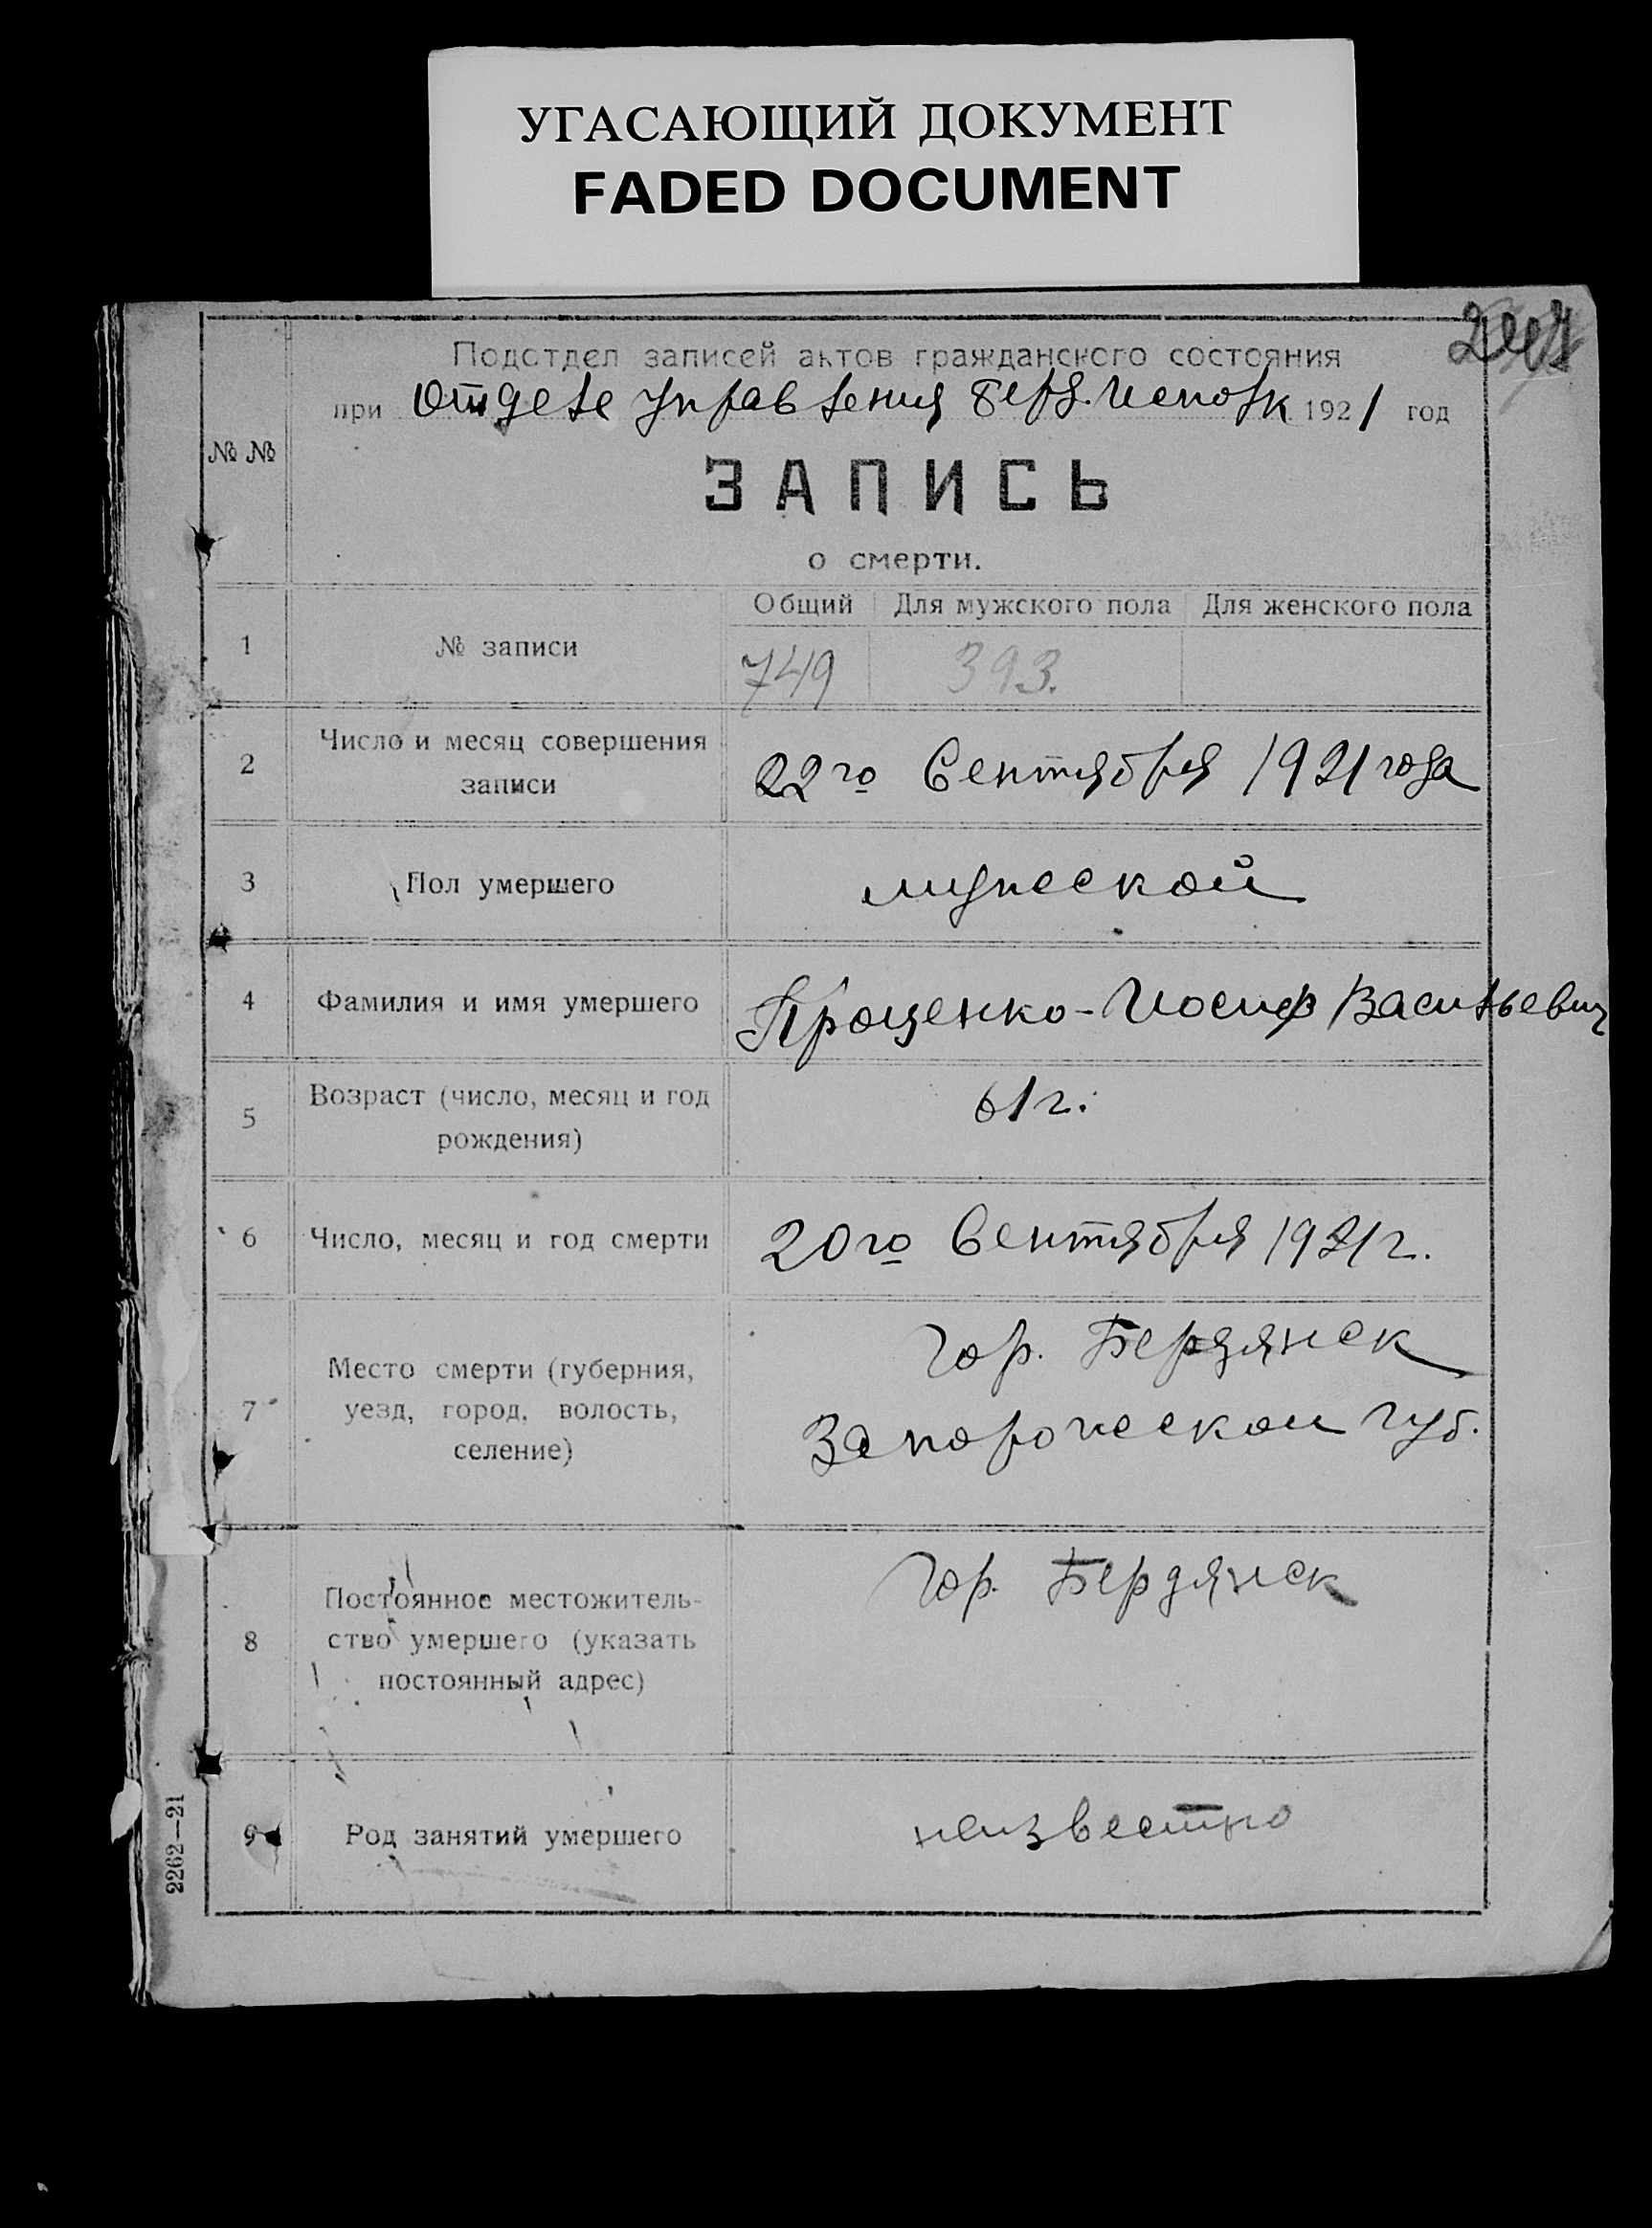 УГАСАЮЩИЙ ДОКУМЕНТ
FADED DOCUMENT
Подотдел записей актов гражданского состояния
при Отделе Управления Берд. Исполк 1921 год
№ №
ЗАПИСЬ
о смерти.
Общий Для мужского пола Для женского пола
1 № записи 749 393.
2 Число и месяц совершения
записи
22го Сентября 1921 года
3 Пол умершего мужской
4 Фамилия и имя умершего Проценко - Иосиф Васильевич
5 Возраст (число, месяц и год
рождения)
61 г.
6 Число, месяц и год смерти 20го Сентября 1921 г.
7 Место смерти (губерния,
уезд, город, волость,
селение)
Гор. Бердянск
Запорожской губ.
8 Постоянное местожитель-
ство умершего (указать
постоянный адрес)
Гор. Бердянск
9 Род занятий умершего неизвестно
2262—21